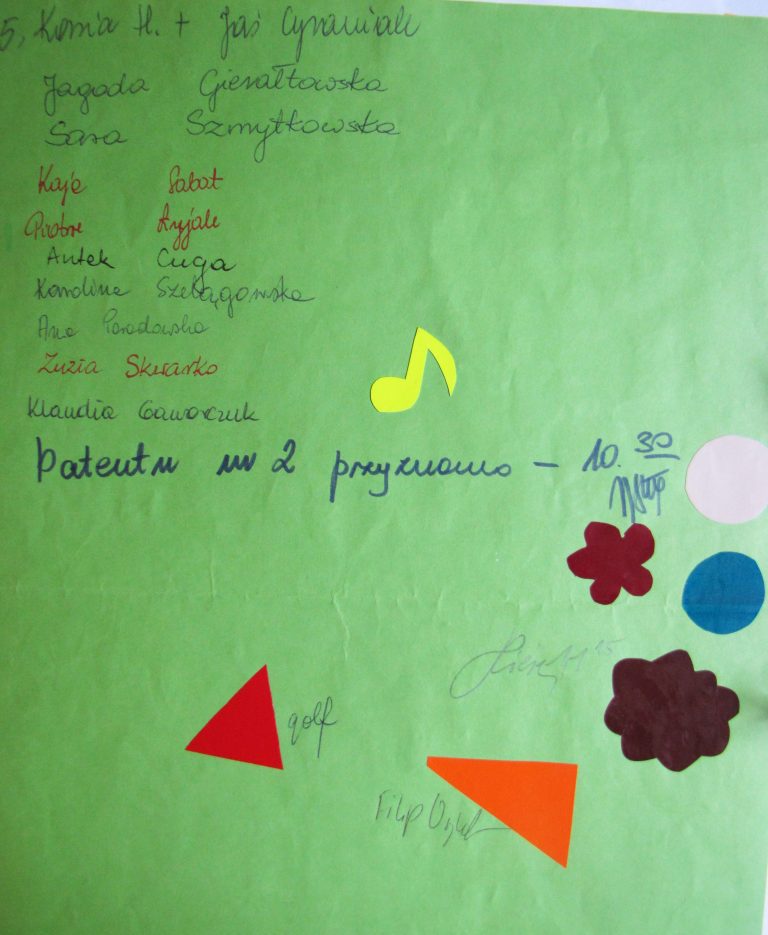 5, Kornia H. + Jaś Cyraniak
Jagoda Gierałtowska
Sara Szmytkowska
Kaja Sabat
Piotre
Antek Cuga
Karolina Szelągowska
Ana Paradowska
Zuzia Skwarko
Klaudia Gaworczuk
Patentu nr 2 przyznano – 10.30
golf
Filip